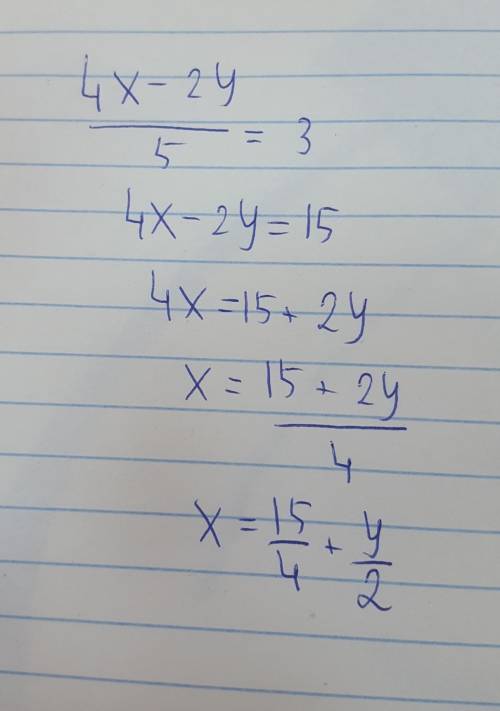 4x - 2y
5 = 3
4x - 2y = 15
4x = 15 + 2y
x = 15 + 2y
4
x = 15/4 + y/2